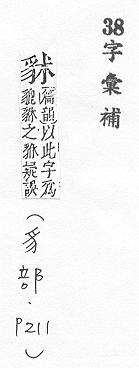 38字彙補
篇韻以此字為
貔貅之貅疑誤
(豸部.P211)